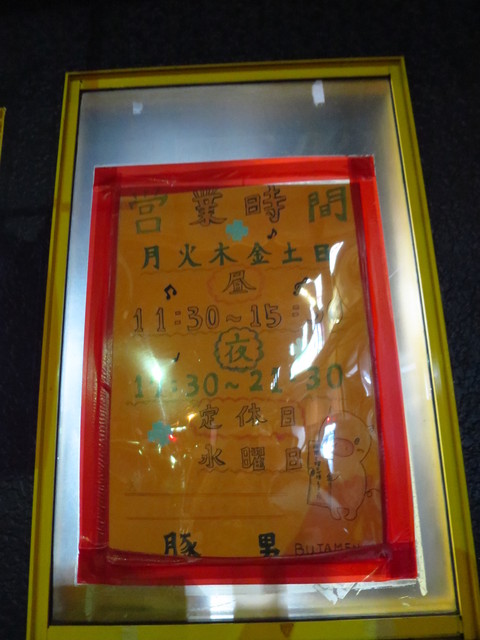 営業時間
月火木金土日
昼
11:30~15:
夜
30~21:30
定休日
水曜日
豚 男